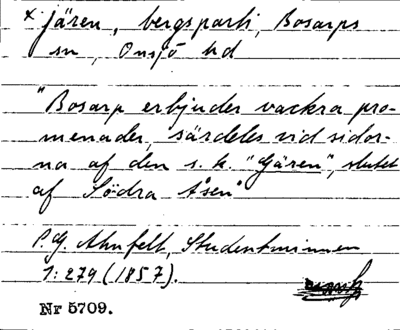 x jären, bergsparti, Bosarps
sn, Onsjö hd
"Bosarp erbjuder vackra pro-
menader, särdeles vid sidor-
na af den s. k. "Gären", slutet
af Södra Åsen"
P. G. Ahnfelt, Studentminnen
1:279 (1857).
Nr 5709.